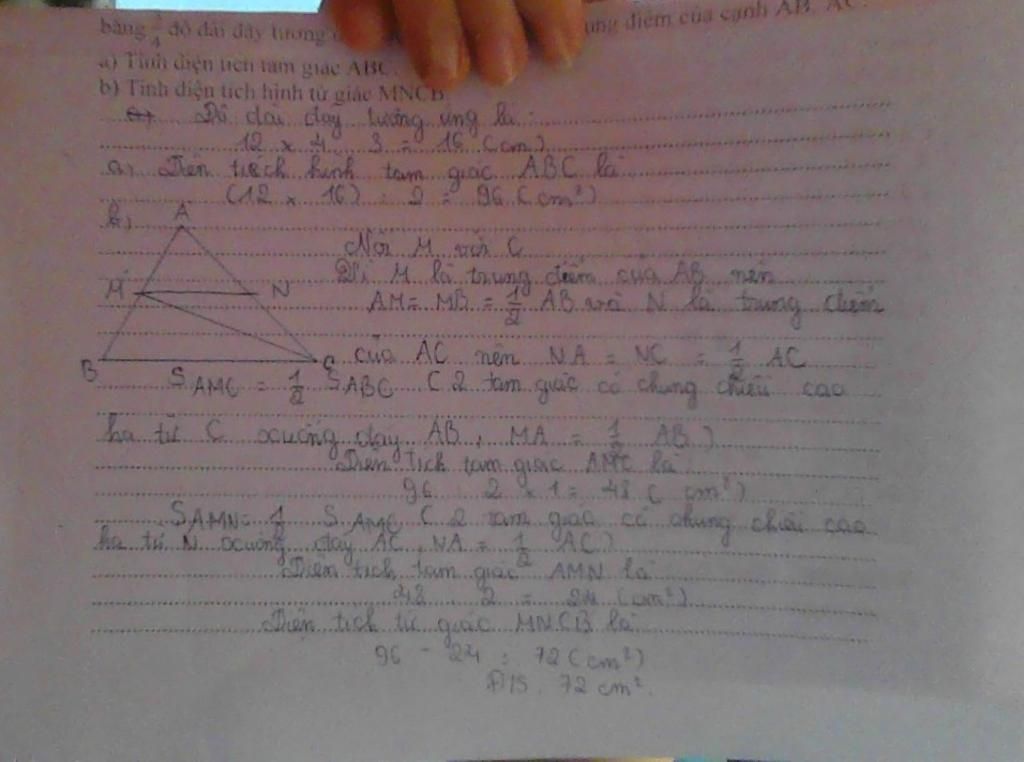 bằng 3/4 độ dài đáy tương ung điểm của cạnh AB, AC.
a) Tính diện tích tam giác ABC.
b) Tính diện tích hình tứ giác MNCB.
Độ dài đáy tương ứng là :
12 x 4 : 3 = 16 (cm)
a) Diện tích hình tam giác ABC là
(12 x 16) : 2 = 96 (cm²)
b)
A
Nối M với C
Vì M là trung điểm của AB nên
M N
AM = MB = 1/2 AB và N là trung điểm
của AC nên NA = NC = 1/2 AC
B C
S AMC = 1/2 S ABC ( 2 tam giác có chung chiều cao
hạ từ C xuống đáy AB, MA = 1/2 AB )
Diện tích tam giác AMC là
96 : 2 x 1 = 48 ( cm²)
S AMN = 1/2 S AMC ( 2 tam giác có chung chiều cao
hạ từ N xuống đáy AC, NA = 1/2 AC )
Diện tích tam giác AMN là
48 : 2 = 24 (cm²)
Diện tích tứ giác MNCB là
96 - 24 = 72 (cm²)
Đ/S : 72 cm².